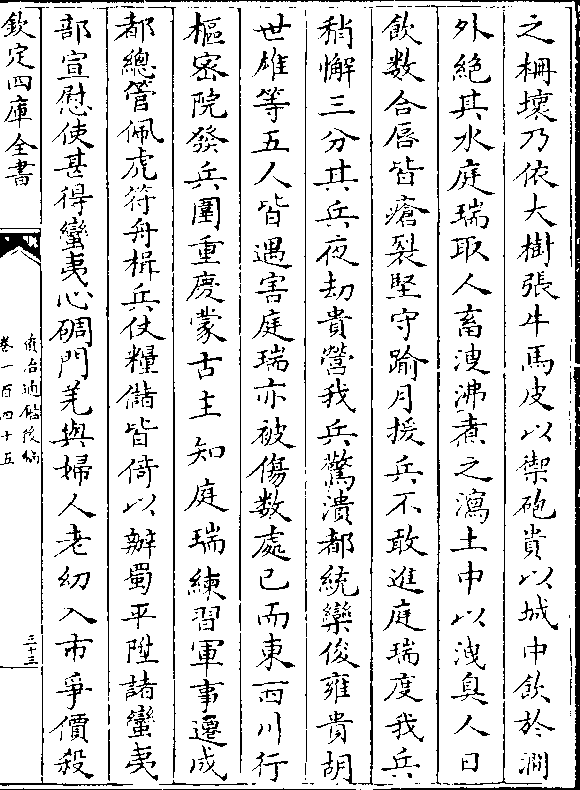 之柵壞乃依大樹張牛馬皮以禦砲貴以城中飲於澗
外絕其水庭瑞取人畜溲沸煮之瀉土中以洩臭人日
飲数合唇皆瘡裂堅守踰月援兵不敢進庭瑞度我兵
稍懈三分其兵夜劫貴營我兵驚潰都統欒俊雍貴胡
世雄等五人皆遇害庭瑞亦被傷数處已而東西川行
樞宻院發兵圍重慶蒙古主知庭瑞練習軍事遷成
都總管佩虎符舟楫兵仗糧儲皆倚以辦蜀平陞諸蠻夷
部宣慰使甚得蠻夷心碉門羌與婦人老幼入市爭價殺
欽定四庫全書
資治通鑑後編
卷一百四十五
三十三